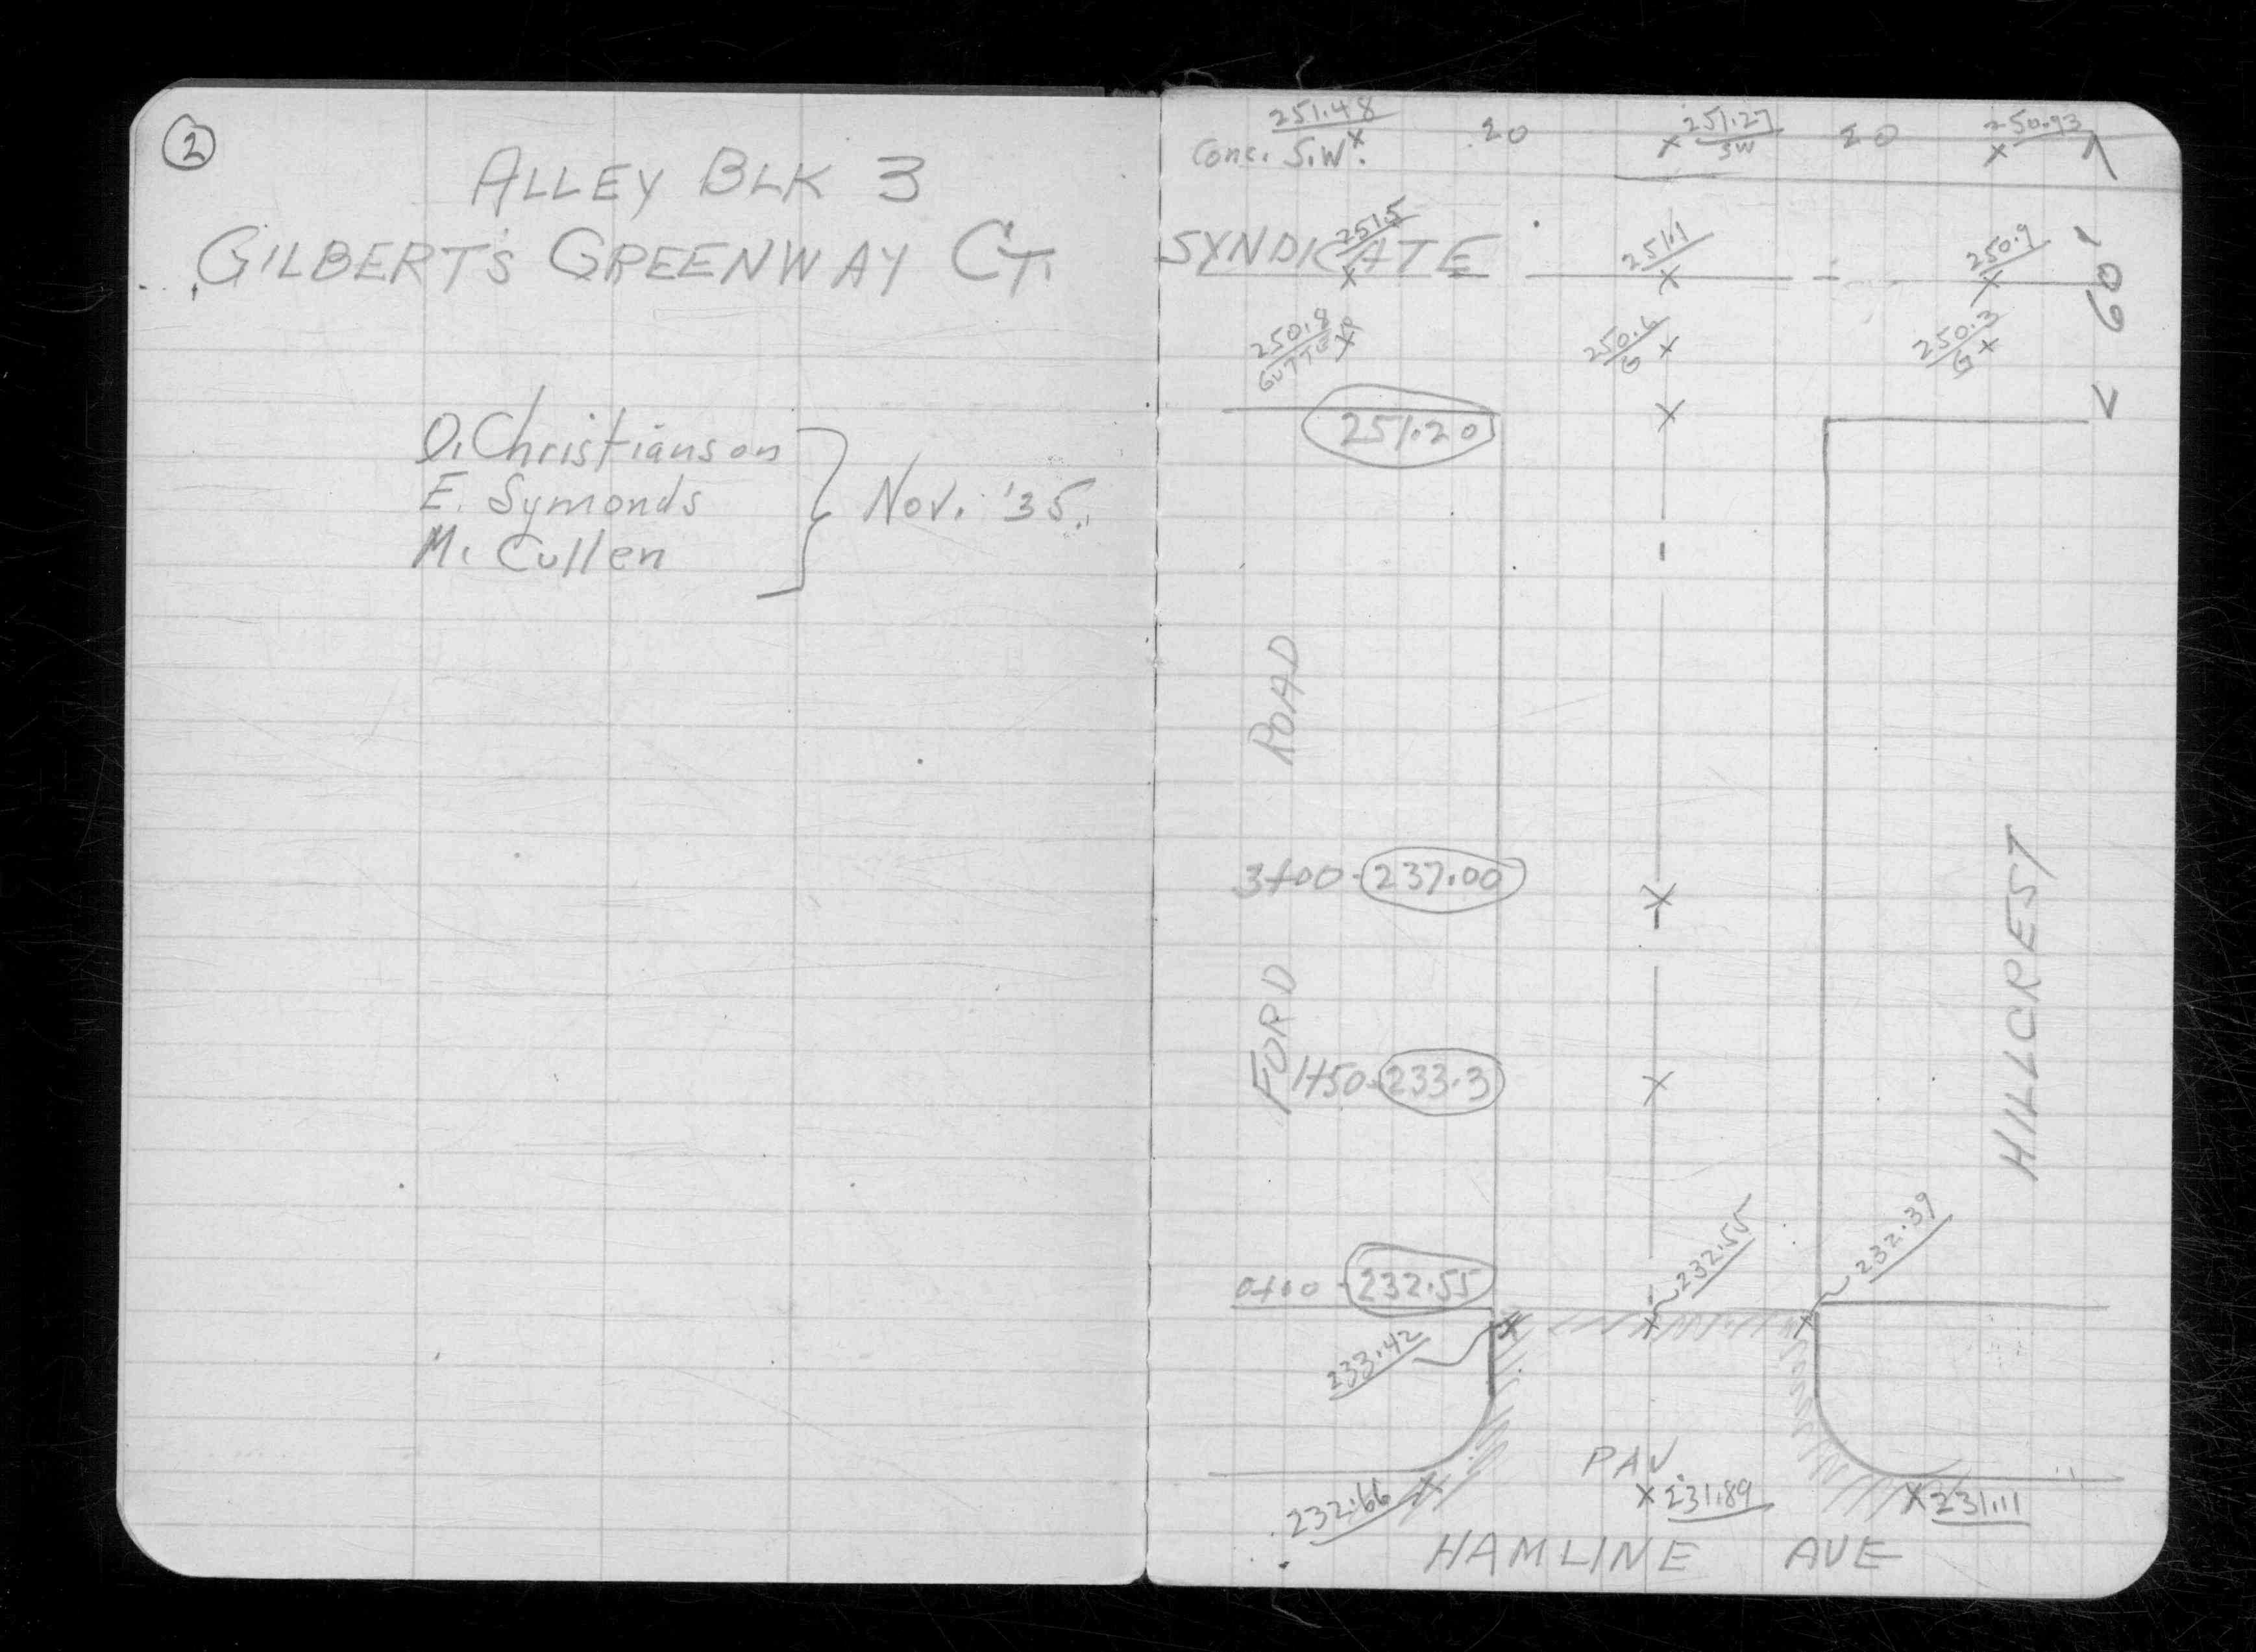 2
ALLEY BLK 3
GILBERT'S GREENWAY CT.
O. Christianson
E. Symonds
M. Cullen
Nov. '35.
251.48 20 251.27 20 250.93
Conc. S.W. SW
SYNDICATE 251.5 251.1 250.9
60'
250.8 250.6 250.3
GUTTER G G
251.20
ROAD
3+00 - 237.00
HILLCREST
FORD
1+50 - 233.3
232.55 232.39
0+00 - 232.55
233.42
PAV
232.66 231.89 231.11
HAMLINE AVE